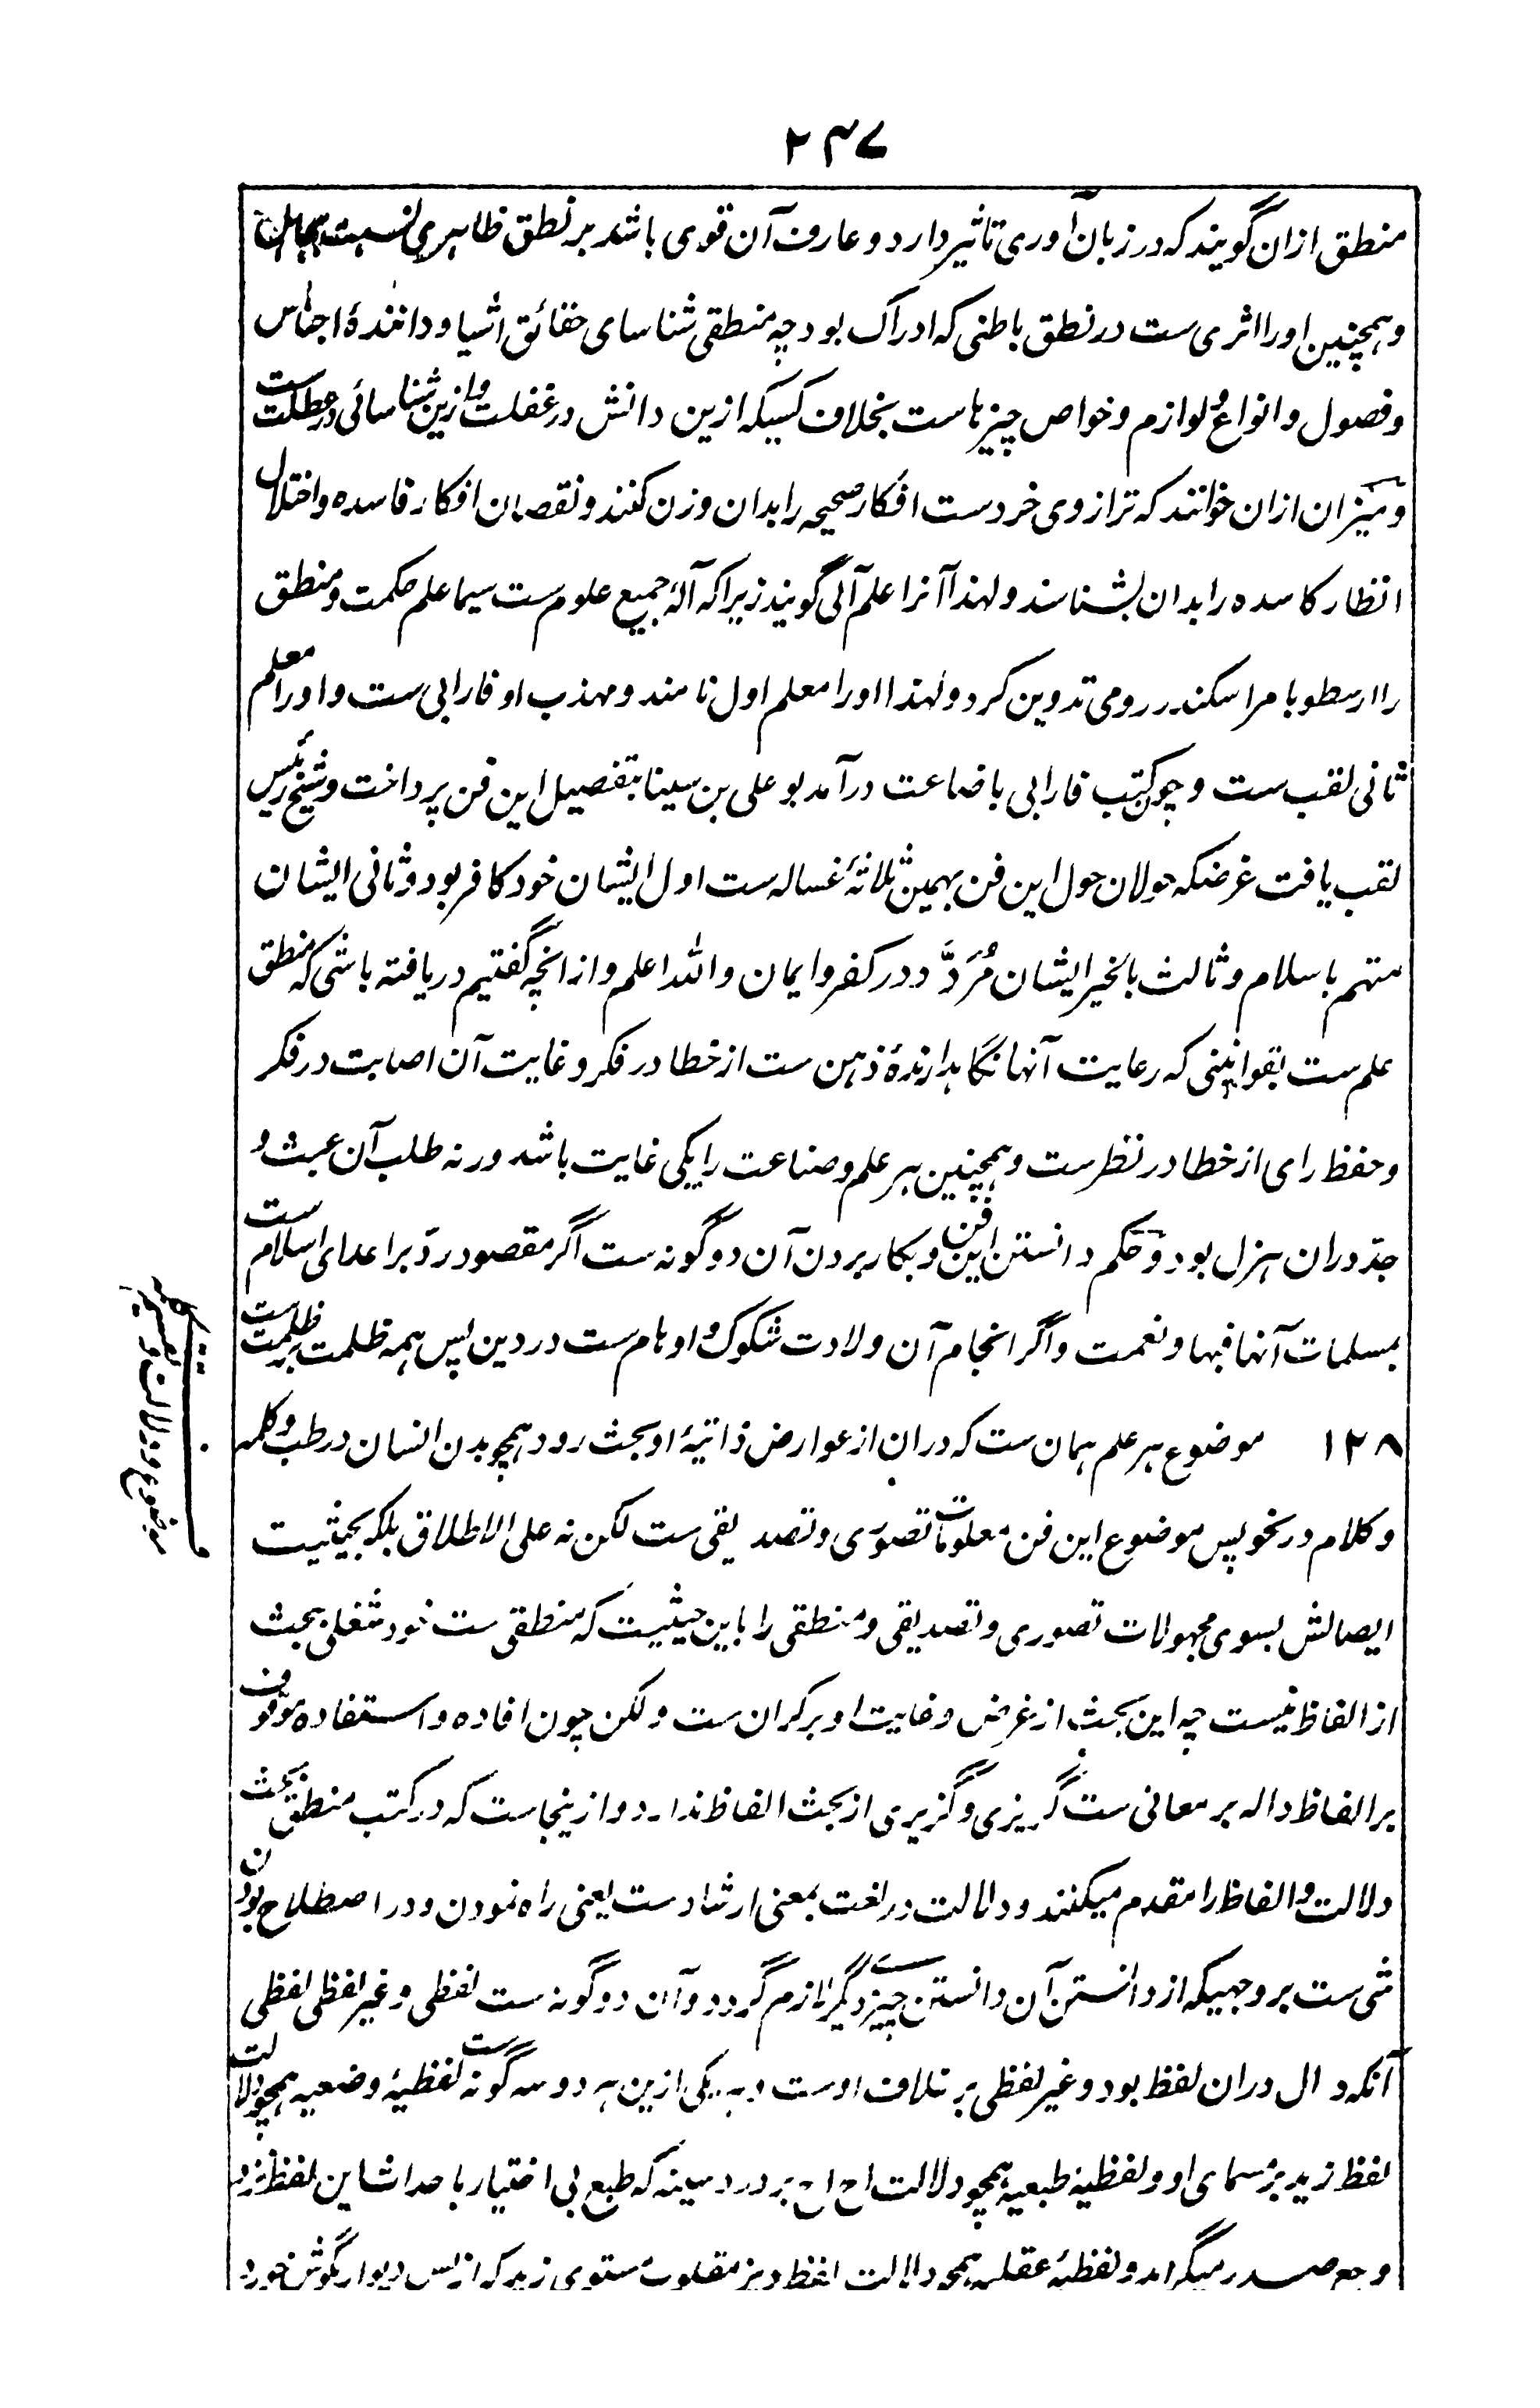 ۲۳۷
منطق ازان گویند که در زبان آوری تاثیر دارد و عارف آن قوی باشد بر نطق ظاهری نسبت بجاهل آن
و همچنین او را اثری ست در نطق باطنی که ادراک بود چه منطقی شناسای حقائق اشیا و دانندهٔ اجناس
و فصول و انواع و لوازم و خواص چیزهاست بخلاف کسیکه ازین دانش در غفلت و ازین شناسائی در عطلت ست
و میزان ازان خوانند که ترازوی خردست افکار صحیحه را بدان وزن کنند و نقصان افکار فاسده و اختلال
انظار کاسده را بدان بشناسند و لهذا آنرا علم آلی گویند زیرا که آلهٔ جمیع علوم ست سیما علم حکمت و منطق
را ارسطو بامر اسکندر رومی تدوین کرد و لهذا او را معلم اول نامند و مهذب او فارابی ست و او را معلم
ثانی لقب ست و چون کتب فارابی باضاعت درآمد بو علی بن سینا بتفصیل این فن پرداخت و شیخ رئیس
لقب یافت غرضکه جولان حول این فن بهمین ثلاثهٔ غساله ست اول ایشان خود کافر بود و ثانی ایشان
متهم باسلام و ثالث بالخیر ایشان مُرَدَّد در کفر و ایمان والله اعلم و ازانچه گفتیم دریافته باشی که منطق
علم ست بقوانینی که رعایت آنها نگاهدارندهٔ ذهن ست از خطا در فکر و غایت آن اصابت در فکر
و حفظ رای از خطا در نظرست و همچنین هر علم و صناعت را یکی غایت باشد ورنه طلب آن عبث و
جد دران هزل بود و حکم دانستن این فن و بکار بردن آن دو گونه ست اگر مقصود رد بر اعدای اسلام ست
بمسلمات آنها فبها و نعمت و اگر انجام آن ولادت شکوک و اوهام ست در دین پس همه ظلمت بر ظلمت ست
۱۲۸ موضوع هر علم همان ست که دران از عوارض ذاتیهٔ او بحث رود همچو بدن انسان در طب و کلمه
و کلام در نحو پس موضوع این فن معلومات تصوری و تصدیقی ست لکن نه علی الاطلاق بلکه بحیثیت
ایصالش بسوی مجهولات تصوری و تصدیقی و منطقی را باین حیثیت که منطقی ست خود شغلی ببحث
از الفاظ نیست چه این بحث از غرض و غایت او بر کران ست و لکن چون افاده و استفاده موقوف
بر الفاظ داله بر معانی ست گریزی و گزیری از بحث الفاظ ندارد و ازینجاست که در کتب منطق بحث
دلالت و الفاظ را مقدم میکنند و دلالت در لغت بمعنی ارشادست یعنی راه نمودن و در اصطلاح بودن
شی ست بر وجهیکه از دانستن آن دانستن چیزے دیگر لازم گردد و آن دو گونه ست لفظی و غیر لفظی لفظی
آنکه دال دران لفظ بود و غیر لفظی بر خلاف اوست و هر یکی ازین هر دو سه گونه ست لفظیهٔ وضعیه همچو دلالت
لفظ زید بر مسمای او و لفظیهٔ طبعیه همچو دلالت اح اح بر درد سینه که طبع بی اختیار باحداث این لفظ نزد
وجع صدر میگراید و لفظیهٔ عقلیه همچو دلالت لفظ دیز مقلوب مستوی زید که از پس دیوار بگوش خورد
موضوع و دلالت و تقسیم